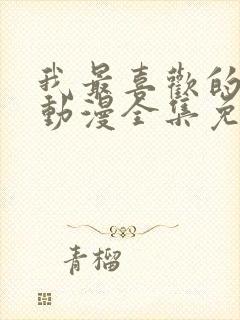 我最喜歡的
動漫全集免
青榴